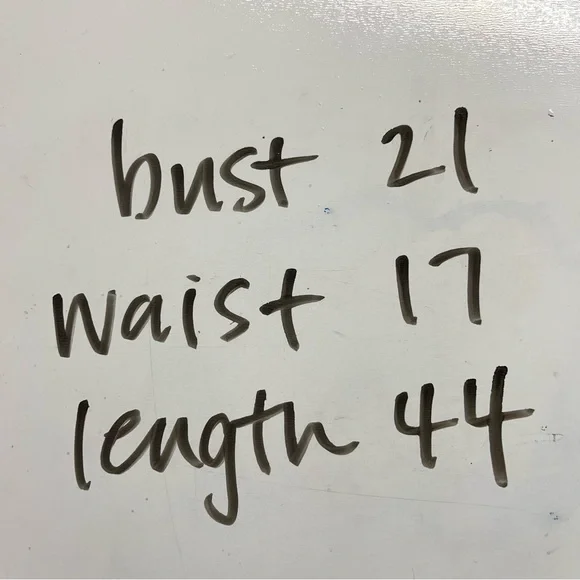 bust 21
waist 17
length 44